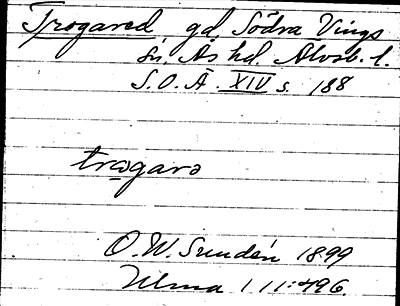 Trogared gd, Södra Vings
sn. Ås hd. Älvsb. l.
S.O.Ä. XIV s. 188
trogarə
O.W. Sundén 1899
Ulma 111:496